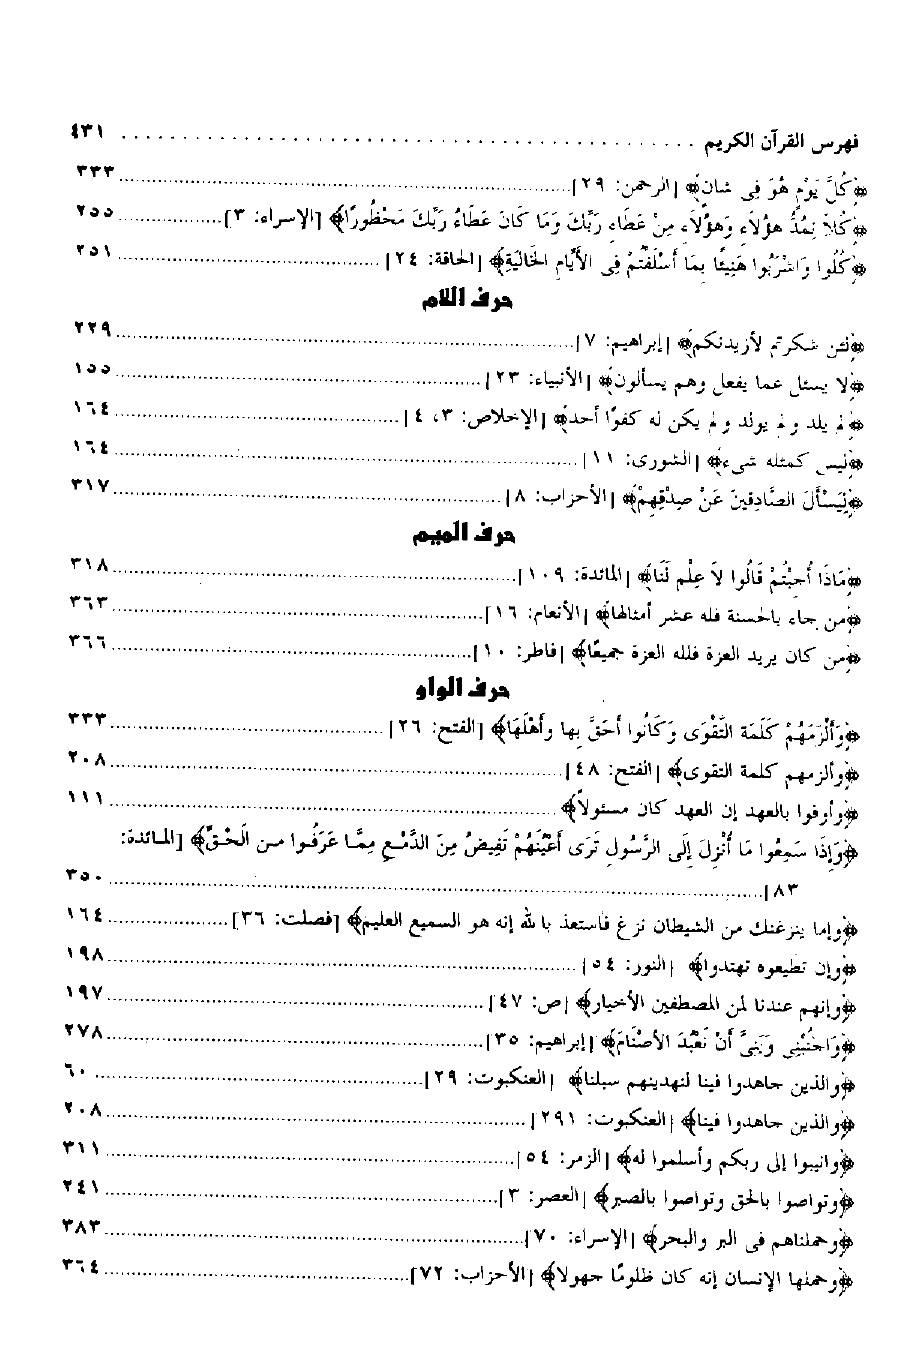 فهرس القرآن الكريم ................................................ ٤٣١
﴿كُلَّ يَوْمٍ هُوَ فِى شَانٍ﴾ [الرحمن: ٢٩] ................................................ ٣٣٣
﴿كُلاًّ نُمِدُّ هؤُلَاءِ وَهؤُلَاءِ مِنْ عَطَاءِ رَبِّكَ وَمَا كَانَ عَطَاءُ رَبِّكَ مَحْظُورًا﴾ [الإسراء: ٣] .............. ٢٥٥
﴿كُلُوا وَاشْرَبُوا هَنِيئًا بِمَا أَسْلَفْتُمْ فِى الأَيَّامِ الخَالِيَةِ﴾ [الحاقة: ٢٤] ................................ ٢٥١
حرف اللام
﴿لئن شكرتم لأزيدنكم﴾ [إبراهيم: ٧] ................................................ ٢٢٩
﴿لا يسئل عما يفعل وهم يسألون﴾ [الأنبياء: ٢٣] ........................................ ١٥٥
﴿لم يلد ولم يولد ولم يكن له كفوًا أحد﴾ [الإخلاص: ٣، ٤] ................................ ١٦٤
﴿ليس كمثله شىء﴾ [الشورى: ١١] ................................................ ١٦٤
﴿لِيَسْأَلَ الصَّادِقِينَ عَنْ صِدْقِهِمْ﴾ [الأحزاب: ٨] ........................................ ٣١٧
حرف الميم
﴿مَاذَا أُجِبْتُمْ قَالُوا لاَ عِلْمِ لَنَا﴾ [المائدة: ١٠٩] ........................................ ٣١٨
﴿من جاء بالحسنة فله عشر أمثالها﴾ [الأنعام: ١٦] ........................................ ٣٦٣
﴿من كان يريد العزة فلله العزة جميعًا﴾ [فاطر: ١٠] ........................................ ٣٦٦
حرف الواو
﴿وَأَلْزَمَهُمْ كَلَمَةَ التَّقْوَى وَكَانُوا أَحَقَّ بِها وَأَهْلَهَا﴾ [الفتح: ٢٦] ................................ ٣٣٣
﴿وألزمهم كلمة التقوى﴾ [الفتح: ٤٨] ................................................ ٢٠٨
﴿وأوفوا بالعهد إن العهد كان مسئولاً﴾ ................................................ ١١١
﴿وَإِذَا سَمِعُوا مَا أُنْزِلَ إِلَى الرَّسُولِ تَرَى أَعْيُنَهُمْ تَفِيضُ مِنَ الدَّمْعِ مِمَّا عَرَفُوا مِنَ الْحَقِّ﴾ [المائدة:
٨٣] ................................................................ ٣٥٠
﴿وإما ينزغنك من الشيطان نزغ فاستعذ بالله إنه هو السميع العليم﴾ [فصلت: ٣٦] .............. ١٦٤
﴿وإن تطيعوه تهتدوا﴾ [النور: ٥٤] ................................................ ١٩٨
﴿وإنهم عندنا لمن المصطفين الأخيار﴾ [ص: ٤٧] ........................................ ١٩٧
﴿وَاجْنُبْنِى وَبَنِىَّ أَنْ نَعْبُدَ الأَصْنَامَ﴾ [إبراهيم: ٣٥] ........................................ ٢٧٨
﴿والذين جاهدوا فينا لنهدينهم سبلنا﴾ [العنكبوت: ٢٩] ................................ ٦٠
﴿والذين جاهدوا فينا﴾ [العنكبوت: ٢٩١] ........................................ ٢٠٨
﴿وانيبوا إلى ربكم وأسلموا له﴾ [الزمر: ٥٤] ........................................ ٣١١
﴿وتواصوا بالحق وتواصوا بالصبر﴾ [العصر: ٣] ........................................ ٢٤١
﴿وحملناهم فى البر والبحر﴾ [الإسراء: ٧٠] ........................................ ٣٨٣
﴿وحملها الإنسان إنه كان ظلومًا جهولا﴾ [الأحزاب: ٧٢] ................................ ٣٦٤